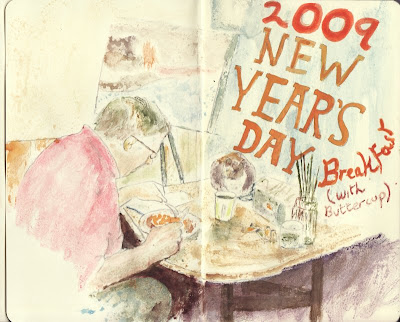 2009
NEW
YEAR'S
DAY
Breakfast
(with
Buttercup)